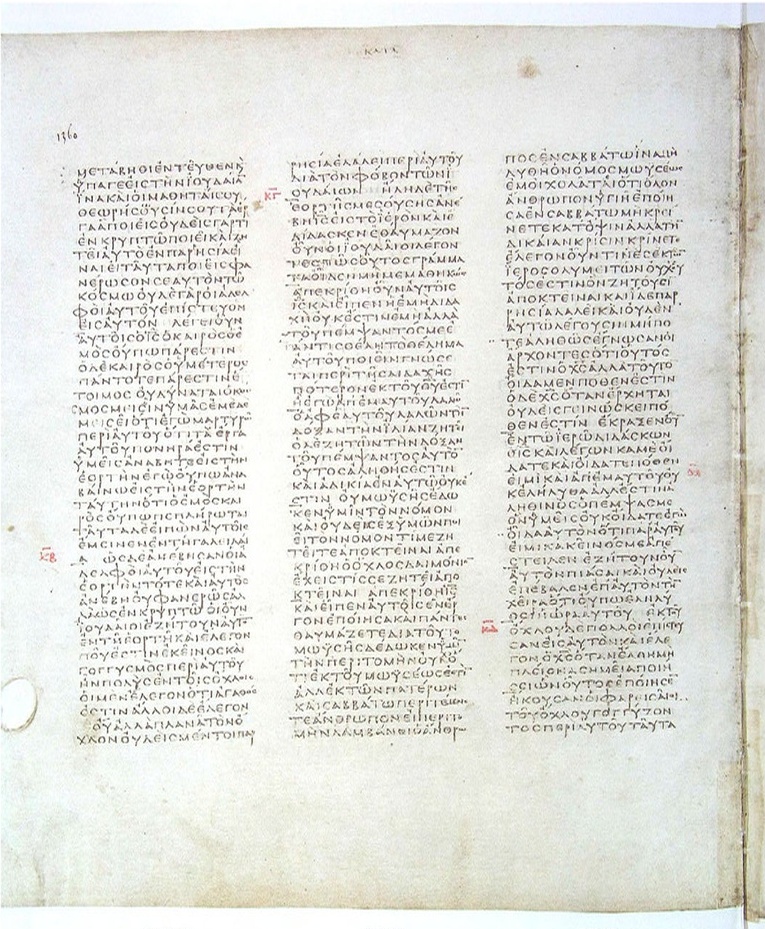 ΚΑΤΑ
1360
ΜΕΤΑΒΗΘΙΕΝΤΕΥΘΕΝΚ
ΥΠΑΓΕΕΙϹΤΗΝΙΟΥΔΑΙΑ
ΙΝΑΚΑΙΟΙΜΑΘΗΤΑΙϹΟΥ
ΘΕΩΡΗϹΟΥϹΙΝϹΟΥΤΑΕΡ
ΓΑΑΠΟΙΕΙϹΟΥΔΕΙϹΓΑΡΤΙ
ΕΝΚΡΥΠΤΩΠΟΙΕΙΚΑΙΖΗ
ΤΕΙΑΥΤΟΕΝΠΑΡΗϹΙΑΕΙ
ΝΑΙΕΙΤΑΥΤΑΠΟΙΕΙϹΦΑ
ΝΕΡΩϹΟΝϹΕΑΥΤΟΝΤΩ
ΚΟϹΜΩΟΥΔΕΓΑΡΟΙΑΔΕΛ
ΦΟΙΑΥΤΟΥΕΠΙϹΤΕΥΟΝ
ΕΙϹΑΥΤΟΝ ΛΕΓΕΙΟΥΝ
ΑΥΤΟΙϹΟΙϹΟΚΑΙΡΟϹΟΕ
ΜΟϹΟΥΠΩΠΑΡΕϹΤΙΝ
ΟΔΕΚΑΙΡΟϹΟΥΜΕΤΕΡΟϹ
ΠΑΝΤΟΤΕΠΑΡΕϹΤΙΝΕ
ΤΟΙΜΟϹ ΟΥΔΥΝΑΤΑΙΟΚΟ
ϹΜΟϹΜΕΙϹΕΙΝΥΜΑϹΕΜΕΔΕ
ΜΕΙϹΕΙΟΤΙΕΓΩΜΑΡΤΥΡΩ
ΠΕΡΙΑΥΤΟΥΟΤΙΤΑΕΡΓΑ
ΑΥΤΟΥΠΟΝΗΡΑΕϹΤΙΝ
ΥΜΕΙϹΑΝΑΒΗΤΕΕΙϹΤΗΝ
ΕΟΡΤΗΝΕΓΩΟΥΠΩΑΝΑ
ΒΑΙΝΩΕΙϹΤΗΝΕΟΡΤΗΝ
ΤΑΥΤΗΝΟΤΙΟΕΜΟϹΚΑΙ
ΡΟϹΟΥΠΩΠΕΠΛΗΡΩΤΑΙ
ΤΑΥΤΑΔΕΕΙΠΩΝΑΥΤΟΙϹ
ΕΜΕΙΝΕΝΕΝΤΗΓΑΛΕΙΛΑΙ
ΚΒ
Α ΩϹΔΕΑΝΕΒΗϹΑΝΟΙΑ
ΔΕΛΦΟΙΑΥΤΟΥΕΙϹΤΗΝ
ΕΟΡΤΗΝΤΟΤΕΚΑΙΑΥΤΟϹ
ΑΝΕΒΗΟΥΦΑΝΕΡΩϹΑΛ
ΛΑΩϹΕΝΚΡΥΠΤΩΟΙΟΥΝ
ΙΟΥΔΑΙΟΙΕΖΗΤΟΥΝΑΥΤΟ
ΕΝΤΗΕΟΡΤΗΚΑΙΕΛΕΓΟΝ
ΠΟΥΕϹΤΙΝΕΚΕΙΝΟϹΚΑΙ
ΓΟΓΓΥϹΜΟϹΠΕΡΙΑΥΤΟΥ
ΗΝΠΟΛΥϹΕΝΤΟΙϹΟΧΛΟΙϹ
ΟΙΜΕΝΕΛΕΓΟΝΟΤΙΑΓΑΘΟϹ
ΕϹΤΙΝΑΛΛΟΙΔΕΕΛΕΓΟΝ
ΟΥΑΛΛΑΠΛΑΝΑΤΟΝΟ
ΧΛΟΝΟΥΔΕΙϹΜΕΝΤΟΙΠΑΡ
ΡΗϹΙΑΕΛΑΛΕΙΠΕΡΙΑΥΤΟΥ
ΔΙΑΤΟΝΦΟΒΟΝΤΩΝΙ
ΚΓ
ΟΥΔΑΙΩΝ ΗΔΗΔΕΤΗϹ
ΕΟΡΤΗϹΜΕϹΟΥϹΗϹΑΝΕ
ΒΗΙϹΕΙϹΤΟΙΕΡΟΝΚΑΙΕ
ΔΙΔΑϹΚΕΝΕΘΑΥΜΑΖΟΝ
ΟΥΝΟΙΙΟΥΔΑΙΟΙΛΕΓΟΝ
ΤΕϹΠΩϹΟΥΤΟϹΓΡΑΜΜΑ
ΤΑΟΙΔΕΝΜΗΜΕΜΑΘΗΚΩϹ
ΑΠΕΚΡΙΘΗΟΥΝΑΥΤΟΙϹ
ΙϹΚΑΙΕΙΠΕΝΗΕΜΗΔΙΔΑ
ΧΗΟΥΚΕϹΤΙΝΕΜΗΑΛΛΑ
ΤΟΥΠΕΜΨΑΝΤΟϹΜΕΕ
ΑΝΤΙϹΘΕΛΗΤΟΘΕΛΗΜΑ
ΑΥΤΟΥΠΟΙΕΙΝΓΝΩϹΕ
ΤΑΙΠΕΡΙΤΗϹΔΙΔΑΧΗϹ
ΠΟΤΕΡΟΝΕΚΤΟΥΘΥΕϹΤΙ
ΗΕΓΩΑΠΕΜΑΥΤΟΥΛΑΛΩ
ΟΑΦΕΑΥΤΟΥΛΑΛΩΝΤΗ
ΔΟΞΑΝΤΗΝΙΔΙΑΝΖΗΤΕΙ
ΟΔΕΖΗΤΩΝΤΗΝΔΟΞΑΝ
ΤΟΥΠΕΜΨΑΝΤΟϹΑΥΤΟ
ΟΥΤΟϹΑΛΗΘΗϹΕϹΤΙΝ
ΚΑΙΑΔΙΚΙΑΕΝΑΥΤΩΟΥΚΕ
ϹΤΙΝ ΟΥΜΩΥϹΗϹΕΔΩ
ΚΕΝΥΜΙΝΤΟΝΝΟΜΟΝ
ΚΑΙΟΥΔΕΙϹΕΞΥΜΩΝΠΟΙ
ΕΙΤΟΝΝΟΜΟΝΤΙΜΕΖΗ
ΤΕΙΤΕΑΠΟΚΤΕΙΝΑΙΑΠΕ
ΚΡΙΘΗΟΟΧΛΟϹΔΑΙΜΟΝΙΟ
ΕΧΕΙϹΤΙϹϹΕΖΗΤΕΙΑΠΟ
ΚΤΕΙΝΑΙ ΑΠΕΚΡΙΘΗΙϹ
ΚΑΙΕΙΠΕΝΑΥΤΟΙϹΕΝΕΡ
ΓΟΝΕΠΟΙΗϹΑΚΑΙΠΑΝΤΕϹ
ΘΑΥΜΑΖΕΤΕΔΙΑΤΟΥΤΟ
ΜΩΥϹΗϹΔΕΔΩΚΕΝΥΜΙ
ΤΗΝΠΕΡΙΤΟΜΗΝΟΥΧΟ
ΤΙΕΚΤΟΥΜΩΥϹΕΩϹΕϹΤΙ
ΑΛΛΕΚΤΩΝΠΑΤΕΡΩΝ
ΚΑΙϹΑΒΒΑΤΩΠΕΡΙΤΕΜΝΕ
ΤΕΑΝΘΡΩΠΟΝΕΙΠΕΡΙΤΟ
ΜΗΝΛΑΜΒΑΝΕΙΟΑΝΘΡΩ
ΠΟϹΕΝϹΑΒΒΑΤΩΙΝΑΜΗ
ΛΥΘΗΟΝΟΜΟϹΜΩΥϹΕΩϹ
ΕΜΟΙΧΟΛΑΤΑΙΟΤΙΟΛΟΝ
ΑΝΘΡΩΠΟΝΥΓΙΗΕΠΟΙΗ
ϹΑΕΝϹΑΒΒΑΤΩΜΗΚΡΕΙ
ΝΕΤΕΚΑΤΟΨΙΝΑΛΛΑΤΗ
ΔΙΚΑΙΑΝΚΡΙϹΙΝΚΡΙΝΕΤΕ
ΕΛΕΓΟΝΟΥΝΤΙΝΕϹΕΚΤΩ
ΙΕΡΟϹΟΛΥΜΕΙΤΩΝΟΥΧΟΥ
ΤΟϹΕϹΤΙΝΟΝΖΗΤΟΥϹΙ
ΑΠΟΚΤΕΙΝΑΙΚΑΙΙΔΕΠΑΡ
ΡΗϹΙΑΛΑΛΕΙΚΑΙΟΥΔΕΝ
ΑΥΤΩΛΕΓΟΥϹΙΝΜΗΠΟ
ΤΕΑΛΗΘΩϹΕΓΝΩϹΑΝΟΙ
ΑΡΧΟΝΤΕϹΟΤΙΟΥΤΟϹ
ΕϹΤΙΝΟΧϹΑΛΛΑΤΟΥΤΟ
ΟΙΔΑΜΕΝΠΟΘΕΝΕϹΤΙΝ
ΟΔΕΧϹΟΤΑΝΕΡΧΗΤΑΙ
ΟΥΔΕΙϹΓΕΙΝΩϹΚΕΙΠΟ
ΘΕΝΕϹΤΙΝ ΕΚΡΑΞΕΝΟΥ
ΕΝΤΩΙΕΡΩΔΙΔΑϹΚΩΝ
ΟΙϹΚΑΙΛΕΓΩΝΚΑΜΕΟΙ
ΔΑΤΕΚΑΙΟΙΔΑΤΕΠΟΘΕΝ
ΕΙΜΙΚΑΙΑΠΕΜΑΥΤΟΥΟΥ
ΚΕΛΗΛΥΘΑΑΛΛΕϹΤΙΝΑ
ΛΗΘΙΝΟϹΟΠΕΜΨΑϹΜΕ
ΟΝΥΜΕΙϹΟΥΚΟΙΔΑΤΕΕΓΩ
ΟΙΔΑΑΥΤΟΝΟΤΙΠΑΡΑΥΤΟΥ
ΕΙΜΙΚΑΚΕΙΝΟϹΜΕΑΠΕ
ϹΤΕΙΛΕΝ ΕΖΗΤΟΥΝΟΥ
ΑΥΤΟΝΠΙΑϹΑΙΚΑΙΟΥΔΕΙϹ
ΕΠΕΒΑΛΕΝΕΠΑΥΤΟΝΤΗ
ΧΕΙΡΑΟΤΙΟΥΠΩΕΛΗΛΥ
ΘΕΙΗΩΡΑΑΥΤΟΥ ΕΚΤΟΥ
ΚΔ
ΟΧΛΟΥΔΕΠΟΛΛΟΙΕΠΙϹΤΕΥ
ϹΑΝΕΙϹΑΥΤΟΝΚΑΙΕΛΕ
ΓΟΝΟΧϹΟΤΑΝΕΛΘΗΜΗ
ΠΛΕΙΟΝΑϹΗΜΕΙΑΠΟΙΗ
ϹΕΙΩΝΟΥΤΟϹΕΠΟΙΗϹΕ
ΗΚΟΥϹΑΝΟΙΦΑΡΕΙϹΑΙΟΙ
ΤΟΥΟΧΛΟΥΓΟΓΓΥΖΟΝ
ΤΟϹΠΕΡΙΑΥΤΟΥΤΑΥΤΑ